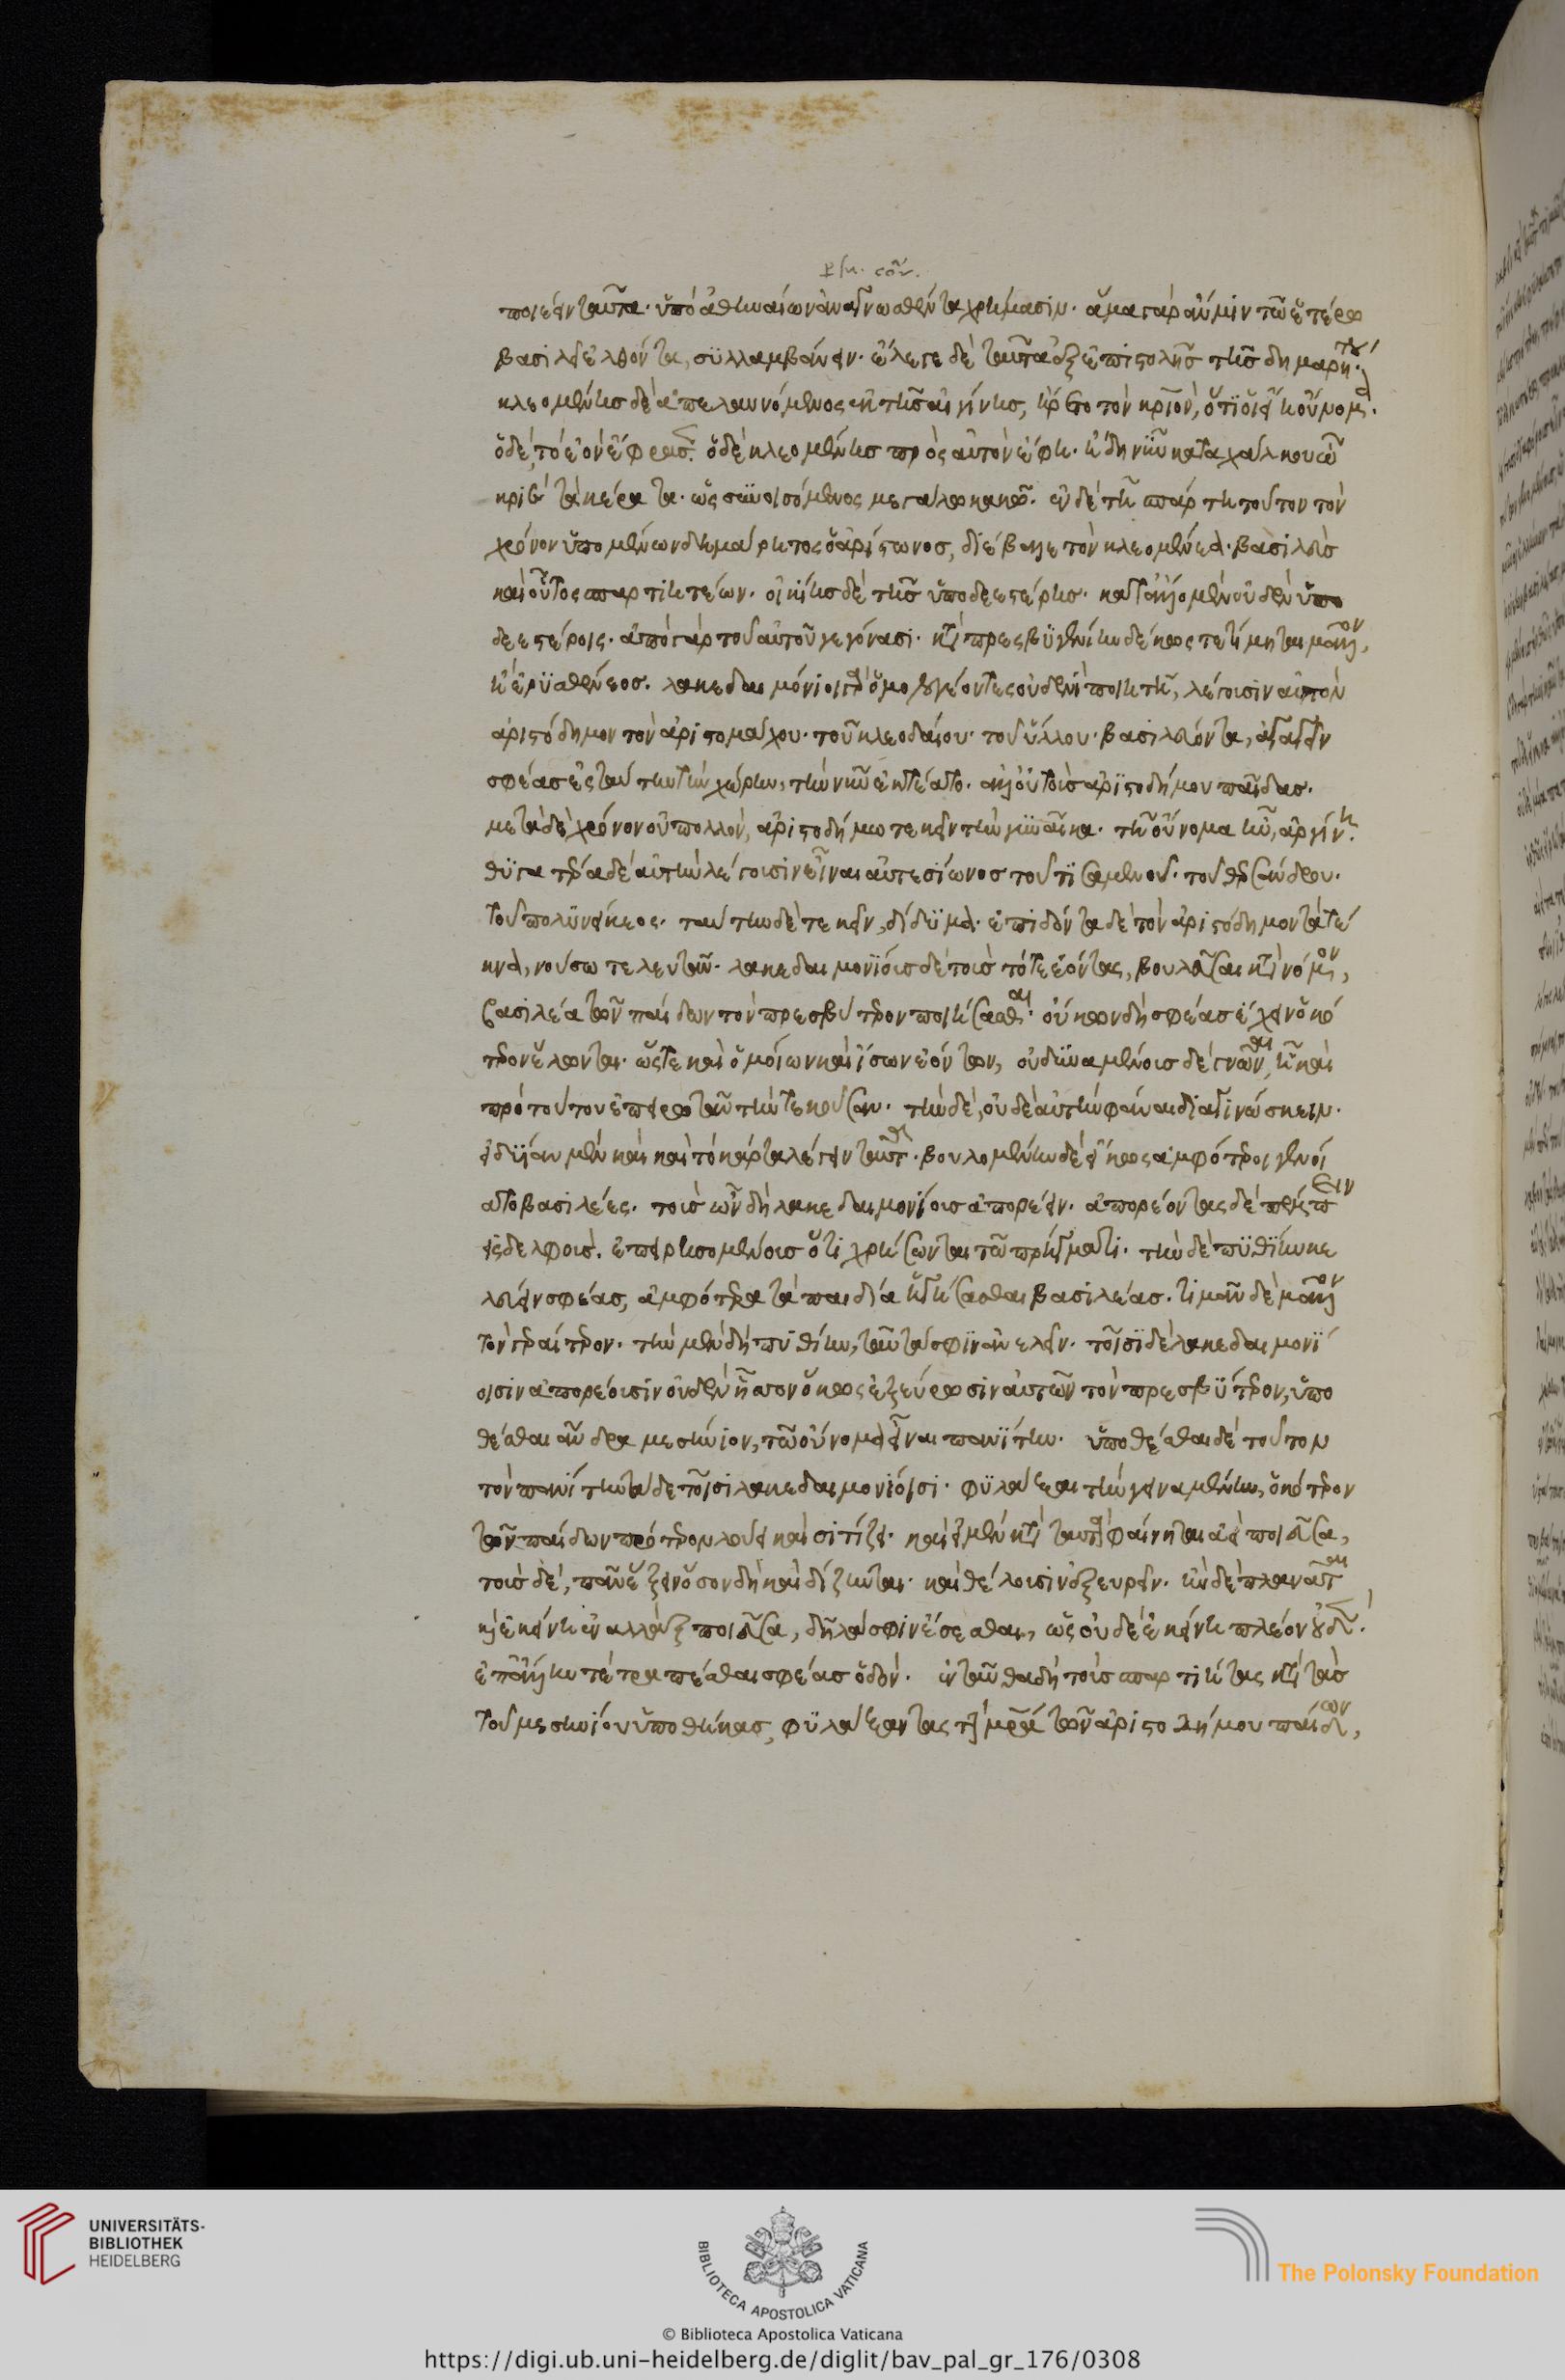 ποιέειν ταῦτα· ὑπὸ ἀθηναίων ἀναγνωσθέντα χρήμασιν· ἅμα γὰρ ἄν μιν τῶ ἑτέρω
βασιλεῖ ἐλθόντα, συλλαμβάνειν. ἔλεγε δὲ ταῦτα ἐξ ἐπιστολῆς τῆς δημαρήτου·
κλεομένης δὲ ἀπελαυνόμενος ἐκ τῆς αἰγίνης, εἴρετο τὸν κριὸν, ὅτι οἱ εἴη τοὔνομα.
ὁ δὲ, τὸ ἐὸν ἔφρασε. ὁ δὲ κλεομένης πρὸς αὐτὸν ἔφη. ἤδη νῦν καταχαλκοῦ ὦ
κριὲ τὰ κέρατα. ὡς συνοισόμενος μεγάλω κακῶ. ἐν δὲ τῆ σπάρτη τοῦτον τὸν
χρόνον ὑπομένων δημάρητος ὁ ἀρίστωνος, διέβαλε τὸν κλεομένεα. βασιλεὺς
καὶ οὗτος σπαρτιητέων. οἰκίης δὲ τῆς ὑποδεεστέρης. κατ' ἄλλο μὲν οὐδὲν ὑπο
δεεστέροις. ἀπὸ γὰρ τοῦ αὐτοῦ γεγόνασι. κατὰ πρεσβυγενίην δέ κως τετίμηται μᾶλλον,
ἡ εὐρυσθένεος. λακεδαιμόνιοι γὰρ ὁμολογέοντες οὐδενὶ ποιητῆ, λέγουσιν αὐτὸν
ἀριστόδημον τὸν ἀριστομάχου· τοῦ κλεοδαίου· τοῦ ὕλλου· βασιλεύοντα, ἀγαγεῖν
σφέας ἐς ταύτην τὴν χώρην, τὴν νῦν ἐκτέαται. ἀλλ' οὐ τοὺς ἀριστοδήμου παῖδας.
μετὰ δὲ χρόνον οὐ πολλὸν, ἀριστοδήμω τεκεῖν τὴν γυναῖκα. τῆ οὔνομα εἶναι ἀργείην.
θυγατέρα δὲ αὐτὴν λέγουσιν εἶναι αὐτεσίωνος τοῦ τισαμενοῦ. τοῦ θερσάνδρου.
τοῦ πολυνείκεος. ταύτην δὲ τεκεῖν, δίδυμα. ἐπιδόντα δὲ τὸν ἀριστόδημον τὰ τέ
κνα, νούσω τελευτᾶν. λακεδαιμονίους δὲ τοὺς τότε ἐόντας, βουλεῦσαι κατὰ νόμον,
βασιλέα τῶν παίδων τὸν πρεσβύτερον ποιήσασθαι. οὔκων δή σφεας ἔχειν ὁκό
τερον ἕλωνται. ὥστε καὶ ὁμοίων καὶ ἴσων ἐόντων, οὐ δυναμένους δὲ γνῶναι, ἢ καὶ
πρὸ τούτου ἐπειρωτᾶν τὴν τεκοῦσαν. τὴν δὲ, οὐδὲ αὐτὴν φάναι διαγινώσκειν.
εἰδυῖαν μὲν καὶ καὶ τὸ κάρτα λέγειν ταῦτα. βουλομένην δὲ εἴ κως ἀμφότεροι γενοί
ατο βασιλέες. τοὺς ὦν δὴ λακεδαιμονίους ἀπορέειν. ἀπορέοντας δὲ πέμπειν
ἐς δελφοὺς. ἐπειρησομένους ὅτι χρήσωνται τῶ πρήγματι. τὴν δὲ πυθίην κε
λεύειν σφέας, ἀμφότερα τὰ παιδία ἡγήσασθαι βασιλέας. τιμᾶν δὲ μᾶλλον
τὸν γεραίτερον. τὴν μὲν δὴ πυθίην, ταῦτά σφιν ἀνελεῖν. τοῖσι δὲ λακεδαιμονί
οισιν ἀπορέουσιν οὐδὲν ἧσσον ὅκως ἐξεύρωσιν αὐτῶν τὸν πρεσβύτερον, ὑπο
θέσθαι ἄνδρα μεσήνιον, τῶ οὔνομα εἶναι πανίτην. ὑποθέσθαι δὲ τοῦτον
τὸν πανίτην τάδε τοῖσι λακεδαιμονίοισι. φυλάξαι τὴν γειναμένην, ὁκότερον
τῶν παίδων πρότερον λούει καὶ σιτίζει. καὶ εἰ μὲν κατὰ ταὐτὰ φαίνηται ἀεὶ ποιεῦσα,
τοὺς δὲ, πᾶν ἕξειν ὅσον δὴ καὶ δίζηνται. καὶ θέλουσιν ἐξευρεῖν. ἢν δὲ πλανᾶται
καὶ ἐκείνη ἐναλλὰξ ποιεῦσα, δῆλά σφιν ἔσεσθαι, ὡς οὐδὲ ἐκείνη πλέον οὐδὲν.
ἐπ' ἄλλην τετραπέσθαι σφέας ὁδὸν. ἐνταῦθα δὴ τοὺς σπαρτιήτας κατὰ τὰς
τοῦ μεσηνίου ὑποθήκας, φυλάξαντας τὴν μητέρα τῶν ἀριστοδήμου παίδων,
UNIVERSITÄTS-
BIBLIOTHEK
HEIDELBERG
BIBLIOTECA APOSTOLICA VATICANA
The Polonsky Foundation
© Biblioteca Apostolica Vaticana
https://digi.ub.uni-heidelberg.de/diglit/bav_pal_gr_176/0308